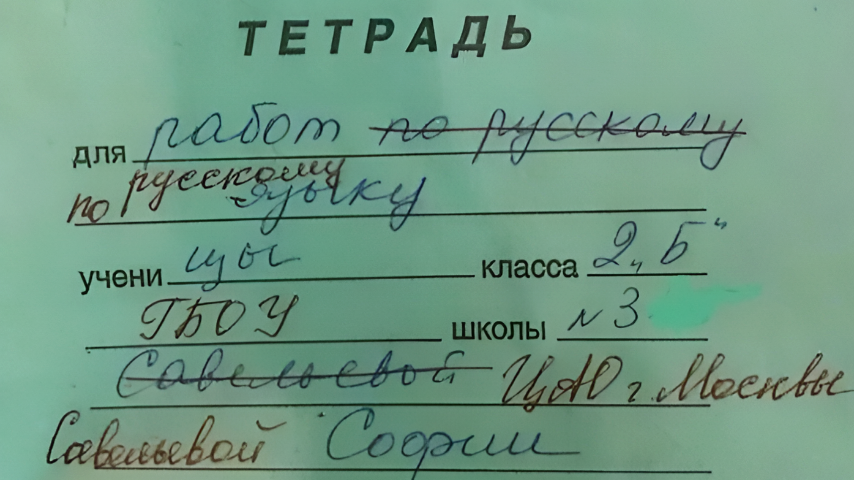 ТЕТРАДЬ
для работ по русскому
по русскому языку
учени цы класса 2 „Б“
ГБОУ школы № 3
Савельевой ЦАО г. Москвы
Савельевой Софии